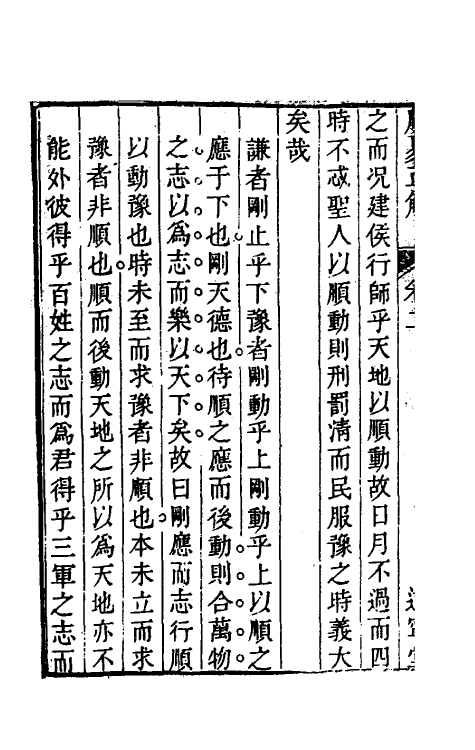 之而況建侯行師乎天地以順動故日月不過而四
時不忒聖人以順動則刑罰清而民服豫之時義大
矣哉
謙者剛止乎下豫者剛動乎上剛動乎上以順之
應于下也剛天德也待順之應而後動則合萬物
之志以為志而樂以天下矣故曰剛應而志行順
以動豫也時未至而求豫者非順也本未立而求
豫者非順也順而後動天地之所以為天地亦不
能外彼得乎百姓之志而為君得乎三軍之志而